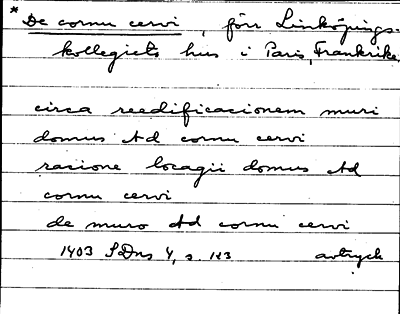 * De cornu cervi, förr Linköpings-
kollegiets hus i Paris, Frankrike.
circa reedificacionem muri
domus Ad cornu cervi
racione locagii domus Ad
cornu cervi
de muro Ad cornu cervi
1403 SDns 4, s. 123 avtryck